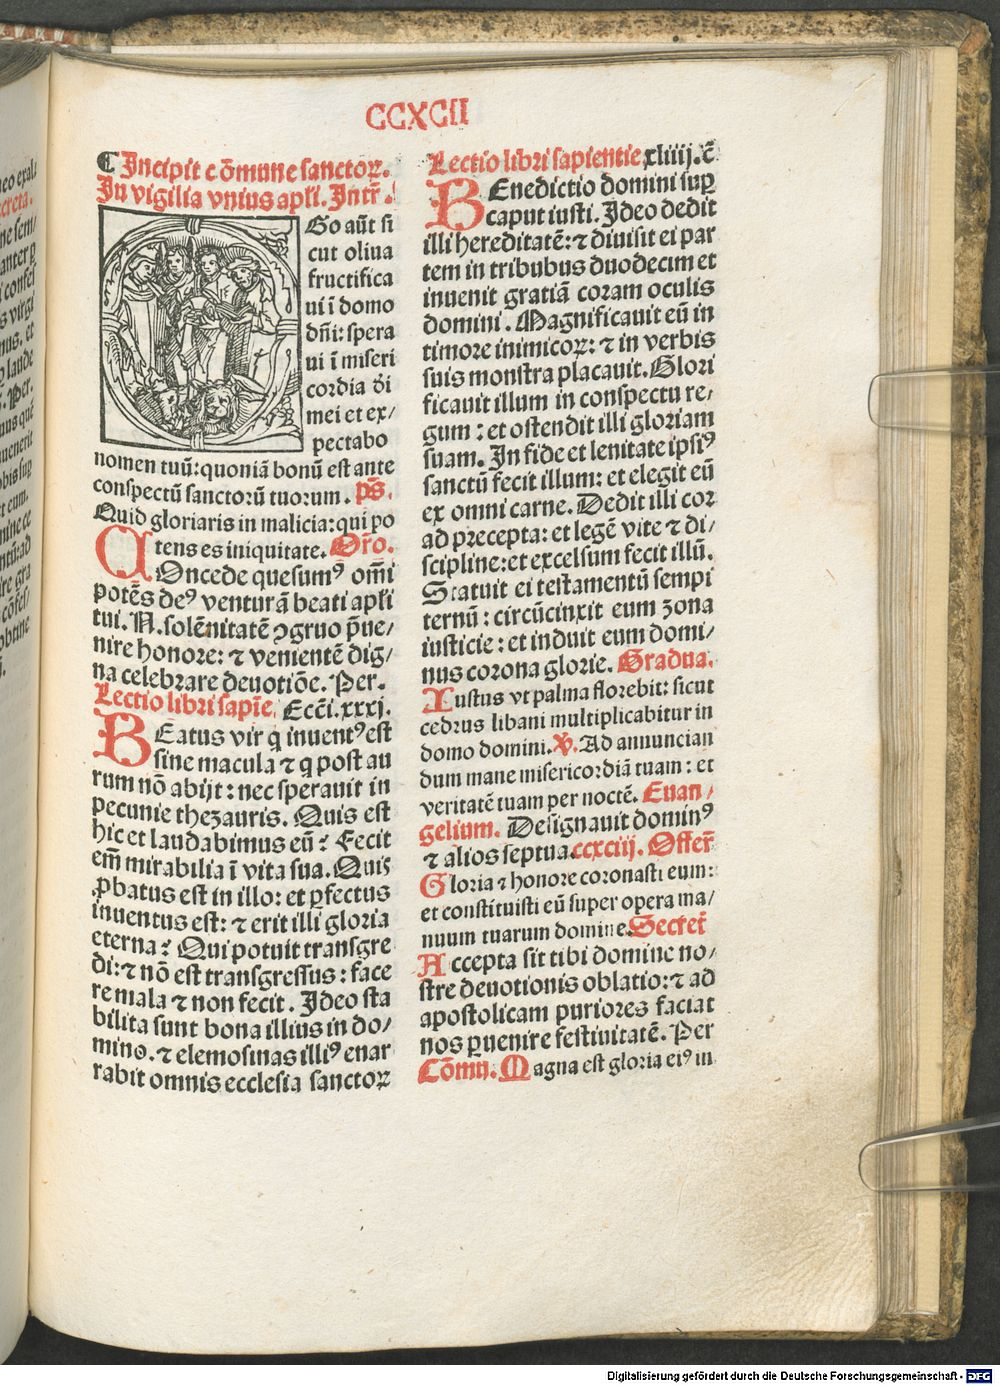 CCXCII
¶ Incipit cōmune sanctoꝝ.
In vigilia vnius apli. Intr̄.
Go aūt si
cut oliua
fructifica
ui ī domo
dn̄i: spera
ui ī miseri
cordia dei
mei et ex/
pectabo
nomen tuū: quoniā bonū est ante
conspectū sanctorū tuorum. ps̄.
Quid gloriaris in malicia: qui po
tens es iniquitate. Or̄o.
COncede quesumꝰ om̄i
potēs deꝰ venturā beati apli
tui. N. solēnitatē ꝯgruo p̄ue/
nire honore: ⁊ venientē dig/
na celebrare deuotiōe. Per.
Lectio libri sapīe. Ecci. xxxj.
BEatus vir q̇ inuentꝰ est
sine macula ⁊ q̇ post au
rum nō abijt: nec sperauit in
pecunie thezauris. Quis est
hic et laudabimus eū? Fecit
em̄ mirabilia ī vita sua. Quis
ꝓbatus est in illo: et ꝑfectus
inuentus est: ⁊ erit illi gloria
eterna? Qui potuit transgre
di: ⁊ nō est transgressus: face
re mala ⁊ non fecit. Ideo sta
bilita sunt bona illius in do/
mino. ⁊ elemosinas illiꝰ enar
rabit omnis ecclesia sanctoꝝ
Lectio libri sapientie xliiij. c̄
BEnedictio domini suꝑ
caput iusti. Ideo dedit
illi hereditatē: ⁊ diuisit ei par
tem in tribubus duodecim et
inuenit gratiā coram oculis
domini. Magnificauit eū in
timore inimicoꝝ: ⁊ in verbis
suis monstra placauit. Glori
ficauit illum in conspectu re/
gum: et ostendit illi gloriam
suam. In fide et lenitate ipsiꝰ
sanctū fecit illum: et elegit eū
ex omni carne. Dedit illi cor
ad precepta: et legē vite ⁊ di/
scipline: et excelsum fecit illū.
Statuit ei testamentū sempi
ternū: circūcinxit eum zona
iusticie: et induit eum domi/
nus corona glorie. Gradua.
Iustus vt palma florebit: sicut
cedrus libani multiplicabitur in
domo domini. ℣. Ad annuncian
dum mane misericordiā tuam: et
veritatē tuam per noctē. Euan/
gelium. Designauit dominꝰ
⁊ alios septua. ccxciij. Offer̄
Gloria ⁊ honore coronasti eum:
et constituisti eū super opera ma/
nuum tuarum domine. Secret̄
Accepta sit tibi domine no/
stre deuotionis oblatio: ⁊ ad
apostolicam puriores faciat
nos ꝑuenire festiuitatē. Per
Cōmn. Magna est gloria eiꝰ in
Digitalisierung gefördert durch die Deutsche Forschungsgemeinschaft - DFG